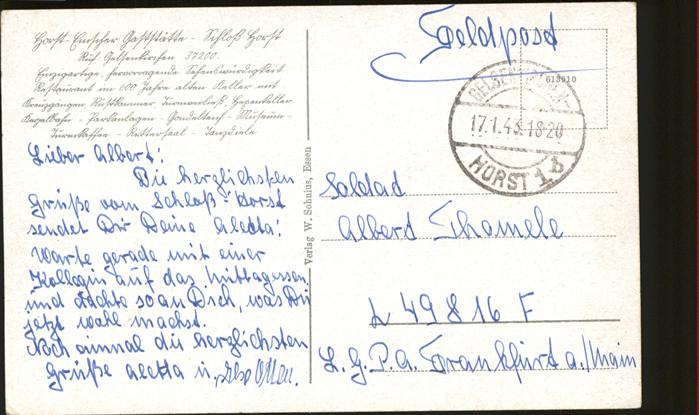 Horst-Emscher Gaststätte - Schloß Horst
Ruf: Gelsenkirchen 37200
Einzigartige, hervorragende Sehenswürdigkeit
Restaurant im 600 Jahre alten Keller mit
Kreuzgängen, Rüstkammer, Turmverließ, Hexenkeller
Kegelbahn - Parkanlagen - Gondelteich - Museum -
Turmkaffee - Rittersaal - Tanzdiele
Lieber Albert!
Die herzlichsten
Grüße vom Schloß Horst
sendet Dir Deine Aletta!
Warte gerade mit einer
Kollegin auf das Mittagessen
und dachte so an Dich, was Du
jetzt wohl machst.
Noch einmal die herzlichsten
Grüße Aletta u.
Verlag W. Sohnius, Essen
Feldpost
613910
GELSENKIRCHEN-
17.1.43.18-20
HORST 1 b
Soldad
Albert Thomele
L 49816 F
L.G.P.A. Frankfurt a./Main